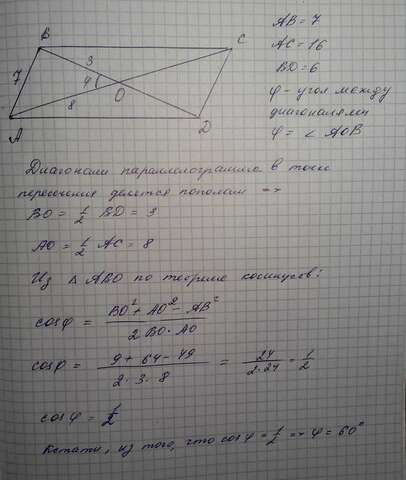 B
C
3
7
φ
8
O
A
D
AB = 7
AC = 16
BD = 6
φ - угол между
диагоналями
φ = ∠ AOB
Диагонали параллелограмма в точке
пересечения делятся пополам =>
BO = 1/2 BD = 3
AO = 1/2 AC = 8
Из △ ABO по теореме косинусов:
cosφ = (BO² + AO² - AB²) / (2 BO · AO)
cosφ = (9 + 64 - 49) / (2 · 3 · 8) = 24 / (2 · 24) = 1/2
cosφ = 1/2
Кстати, из того, что cosφ = 1/2 => φ = 60°